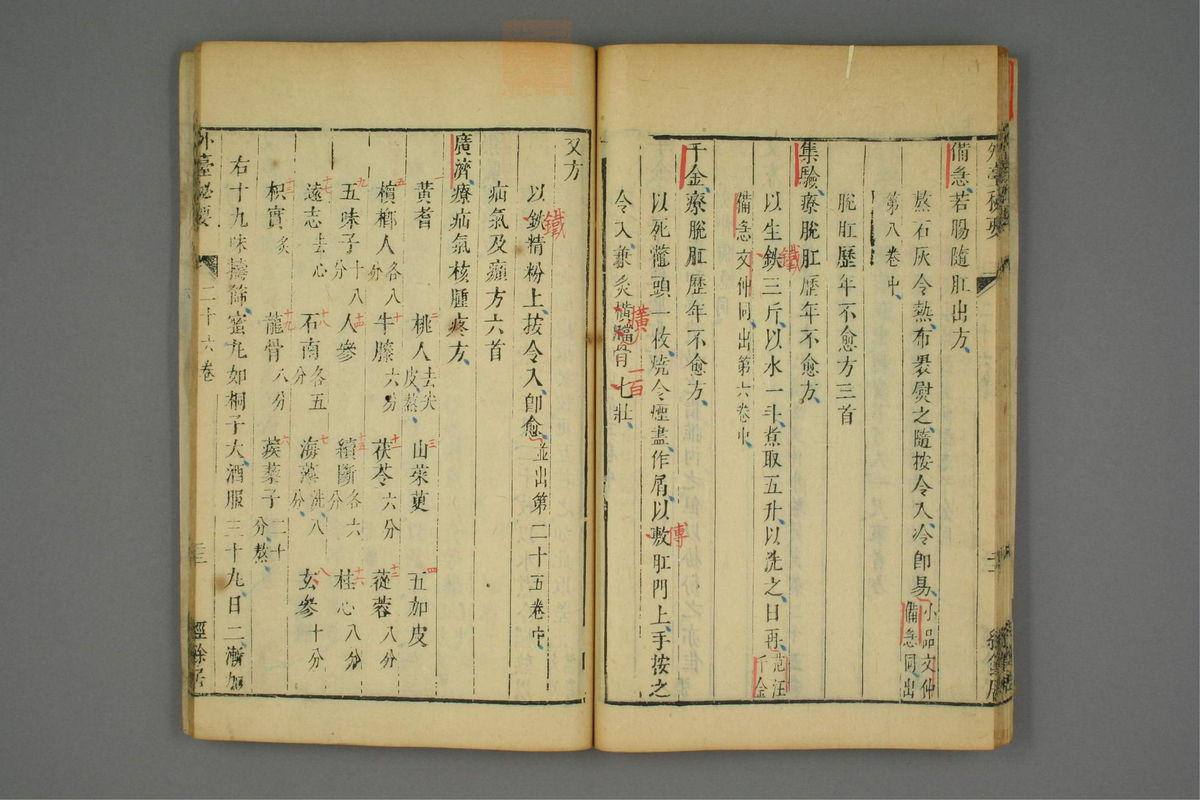 備急若腸隨肛出方
熬石灰令熱布裹熨之隨按令入冷卽易小品文仲備急同出
第八卷中
脫肛歷年不愈方三首
集驗療脫肛歷年不愈方
以生鉄三斤以水一斗煮取五升以洗之日再范汪千金
備急文仲同出第六卷中
千金療脫肛歷年不愈方
以死鼈頭一枚燒令煙盡作屑以敷肛門上手按之
令入兼灸橫骨七壯
鐵
傅
橫
一百
又方
以鉄精粉上拔令入卽愈並出第二十五卷中
鐵
疝氣及㿗方六首
廣濟療疝氣核腫疼方
一黃耆 二桃人去尖皮熬 三山茱萸 四五加皮
五檳榔人各八分 十牛膝六分 十一茯苓六分 十二蓯蓉八分
九五味子十八分 十四人參 十五續斷各六分 十六桂心八分
十七遠志去心 十八石南各五分 七海藻洗八分 八玄參十分
十三枳實炙 十九龍骨八分 六蒺藜子二十分熬
右十九味擣篩蜜丸如桐子大酒服三十丸日二漸加
外臺秘要
二十六卷
經餘居